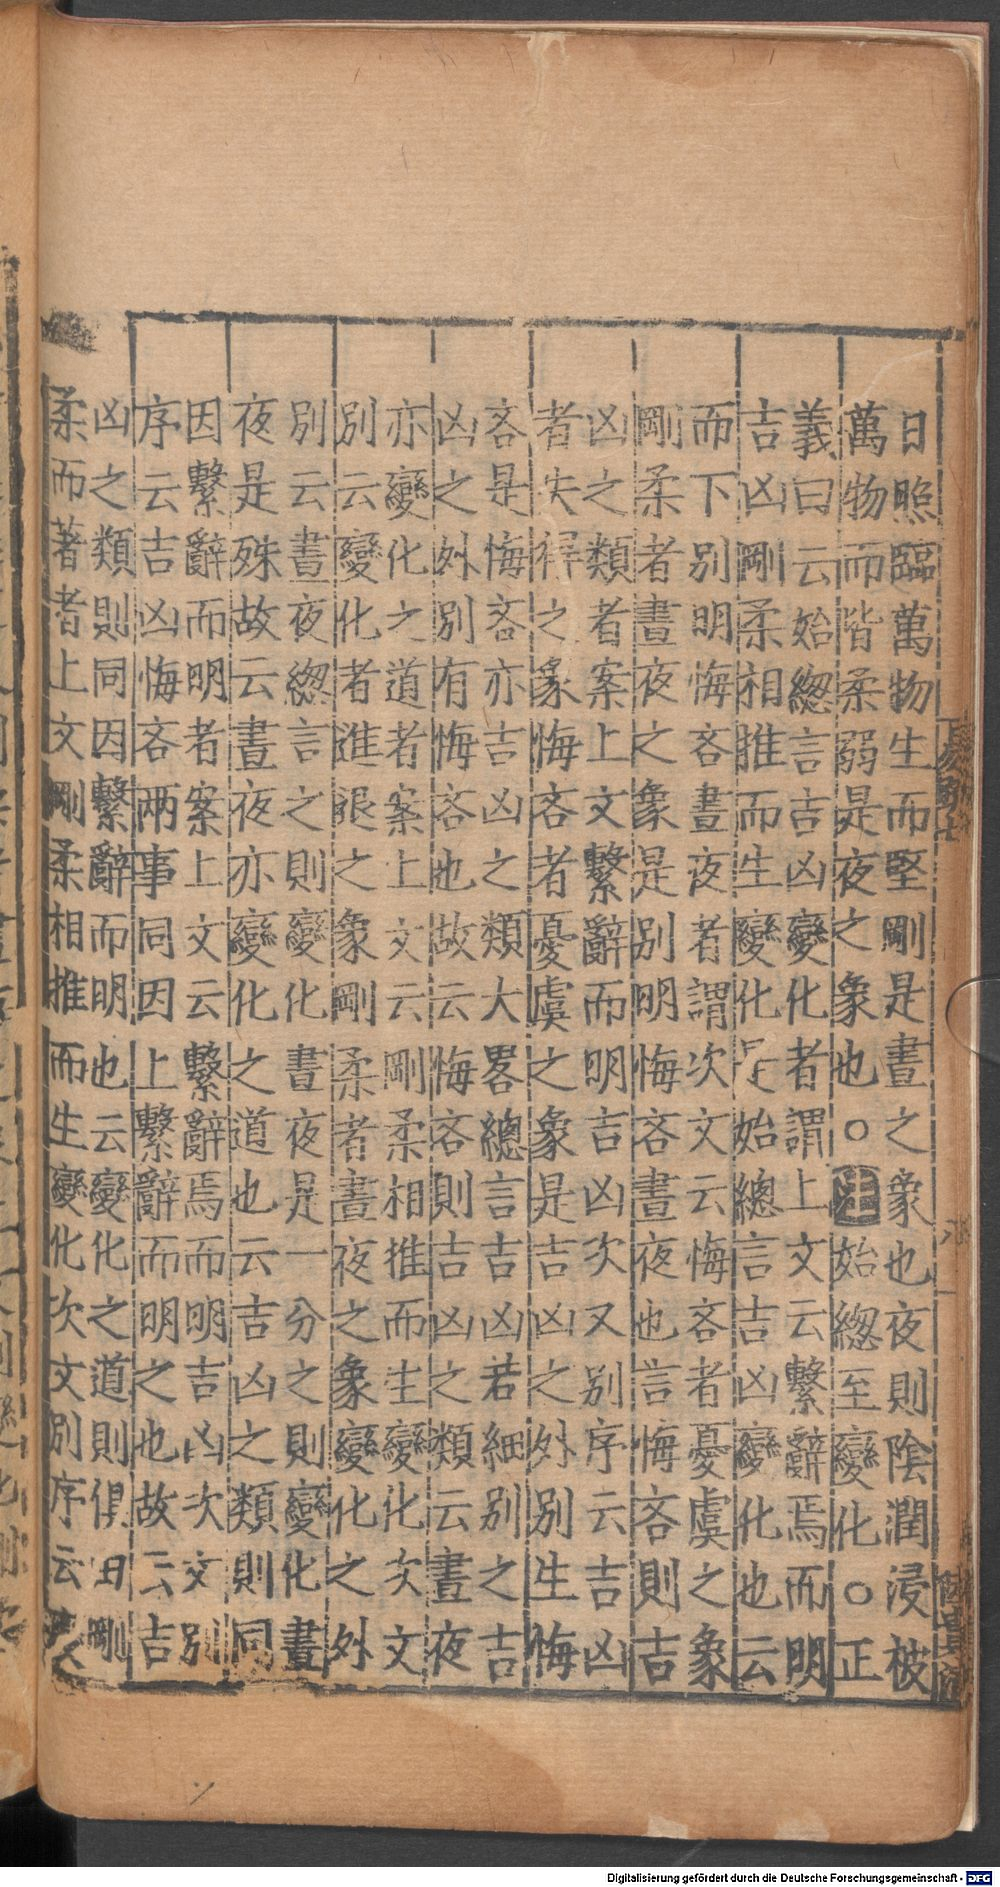 日照臨萬物生而堅剛是晝之象也夜則陰潤浸被
萬物而皆柔弱是夜之象也○注始緫至變化○正
義曰云始緫言吉凶變化者謂上文云繫辭焉而明
吉凶剛柔相推而生變化是始總言吉凶變化也云
而下別明悔吝晝夜者謂次文云悔吝者憂虞之象
剛柔者晝夜之象是別明悔吝晝夜也言悔吝則吉
凶之類者案上文繫辭而明吉凶次又別序云吉凶
者失得之象悔吝者憂虞之象是吉凶之外別生悔
吝是悔吝亦吉凶之類大畧總言吉凶若細別之吉
凶之外別有悔吝也故云悔吝則吉凶之類云晝夜
亦變化之道者案上文云剛柔相推而生變化次文
別云變化者進退之象剛柔者晝夜之象變化之外
別云晝夜緫言之則變化晝夜是一分之則變化晝
夜是殊故云晝夜亦變化之道也云吉凶之類則同
因繫辭而明者案上文云繫辭焉而明吉凶次文別
序云吉凶悔吝兩事同因上繫辭而明之也故云吉
凶之類則同因繫辭而明也云變化之道則俱由剛
柔而著者上文剛柔相推而生變化次文別序云
Digitalisierung gefördert durch die Deutsche Forschungsgemeinschaft - DFG